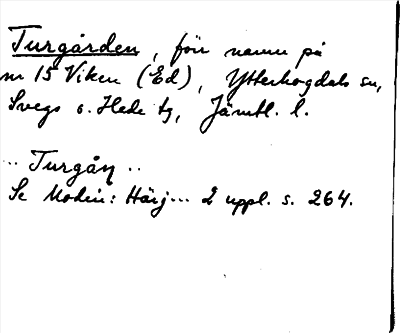 Turgården, förr namn på
nr 15 Viken (Ed), Ytterhogdals sn,
Svegs o. Hede tg, Jämtl. l.
... Turgåɳ ..
Se Modin: Härj... 2 uppl. s. 264.